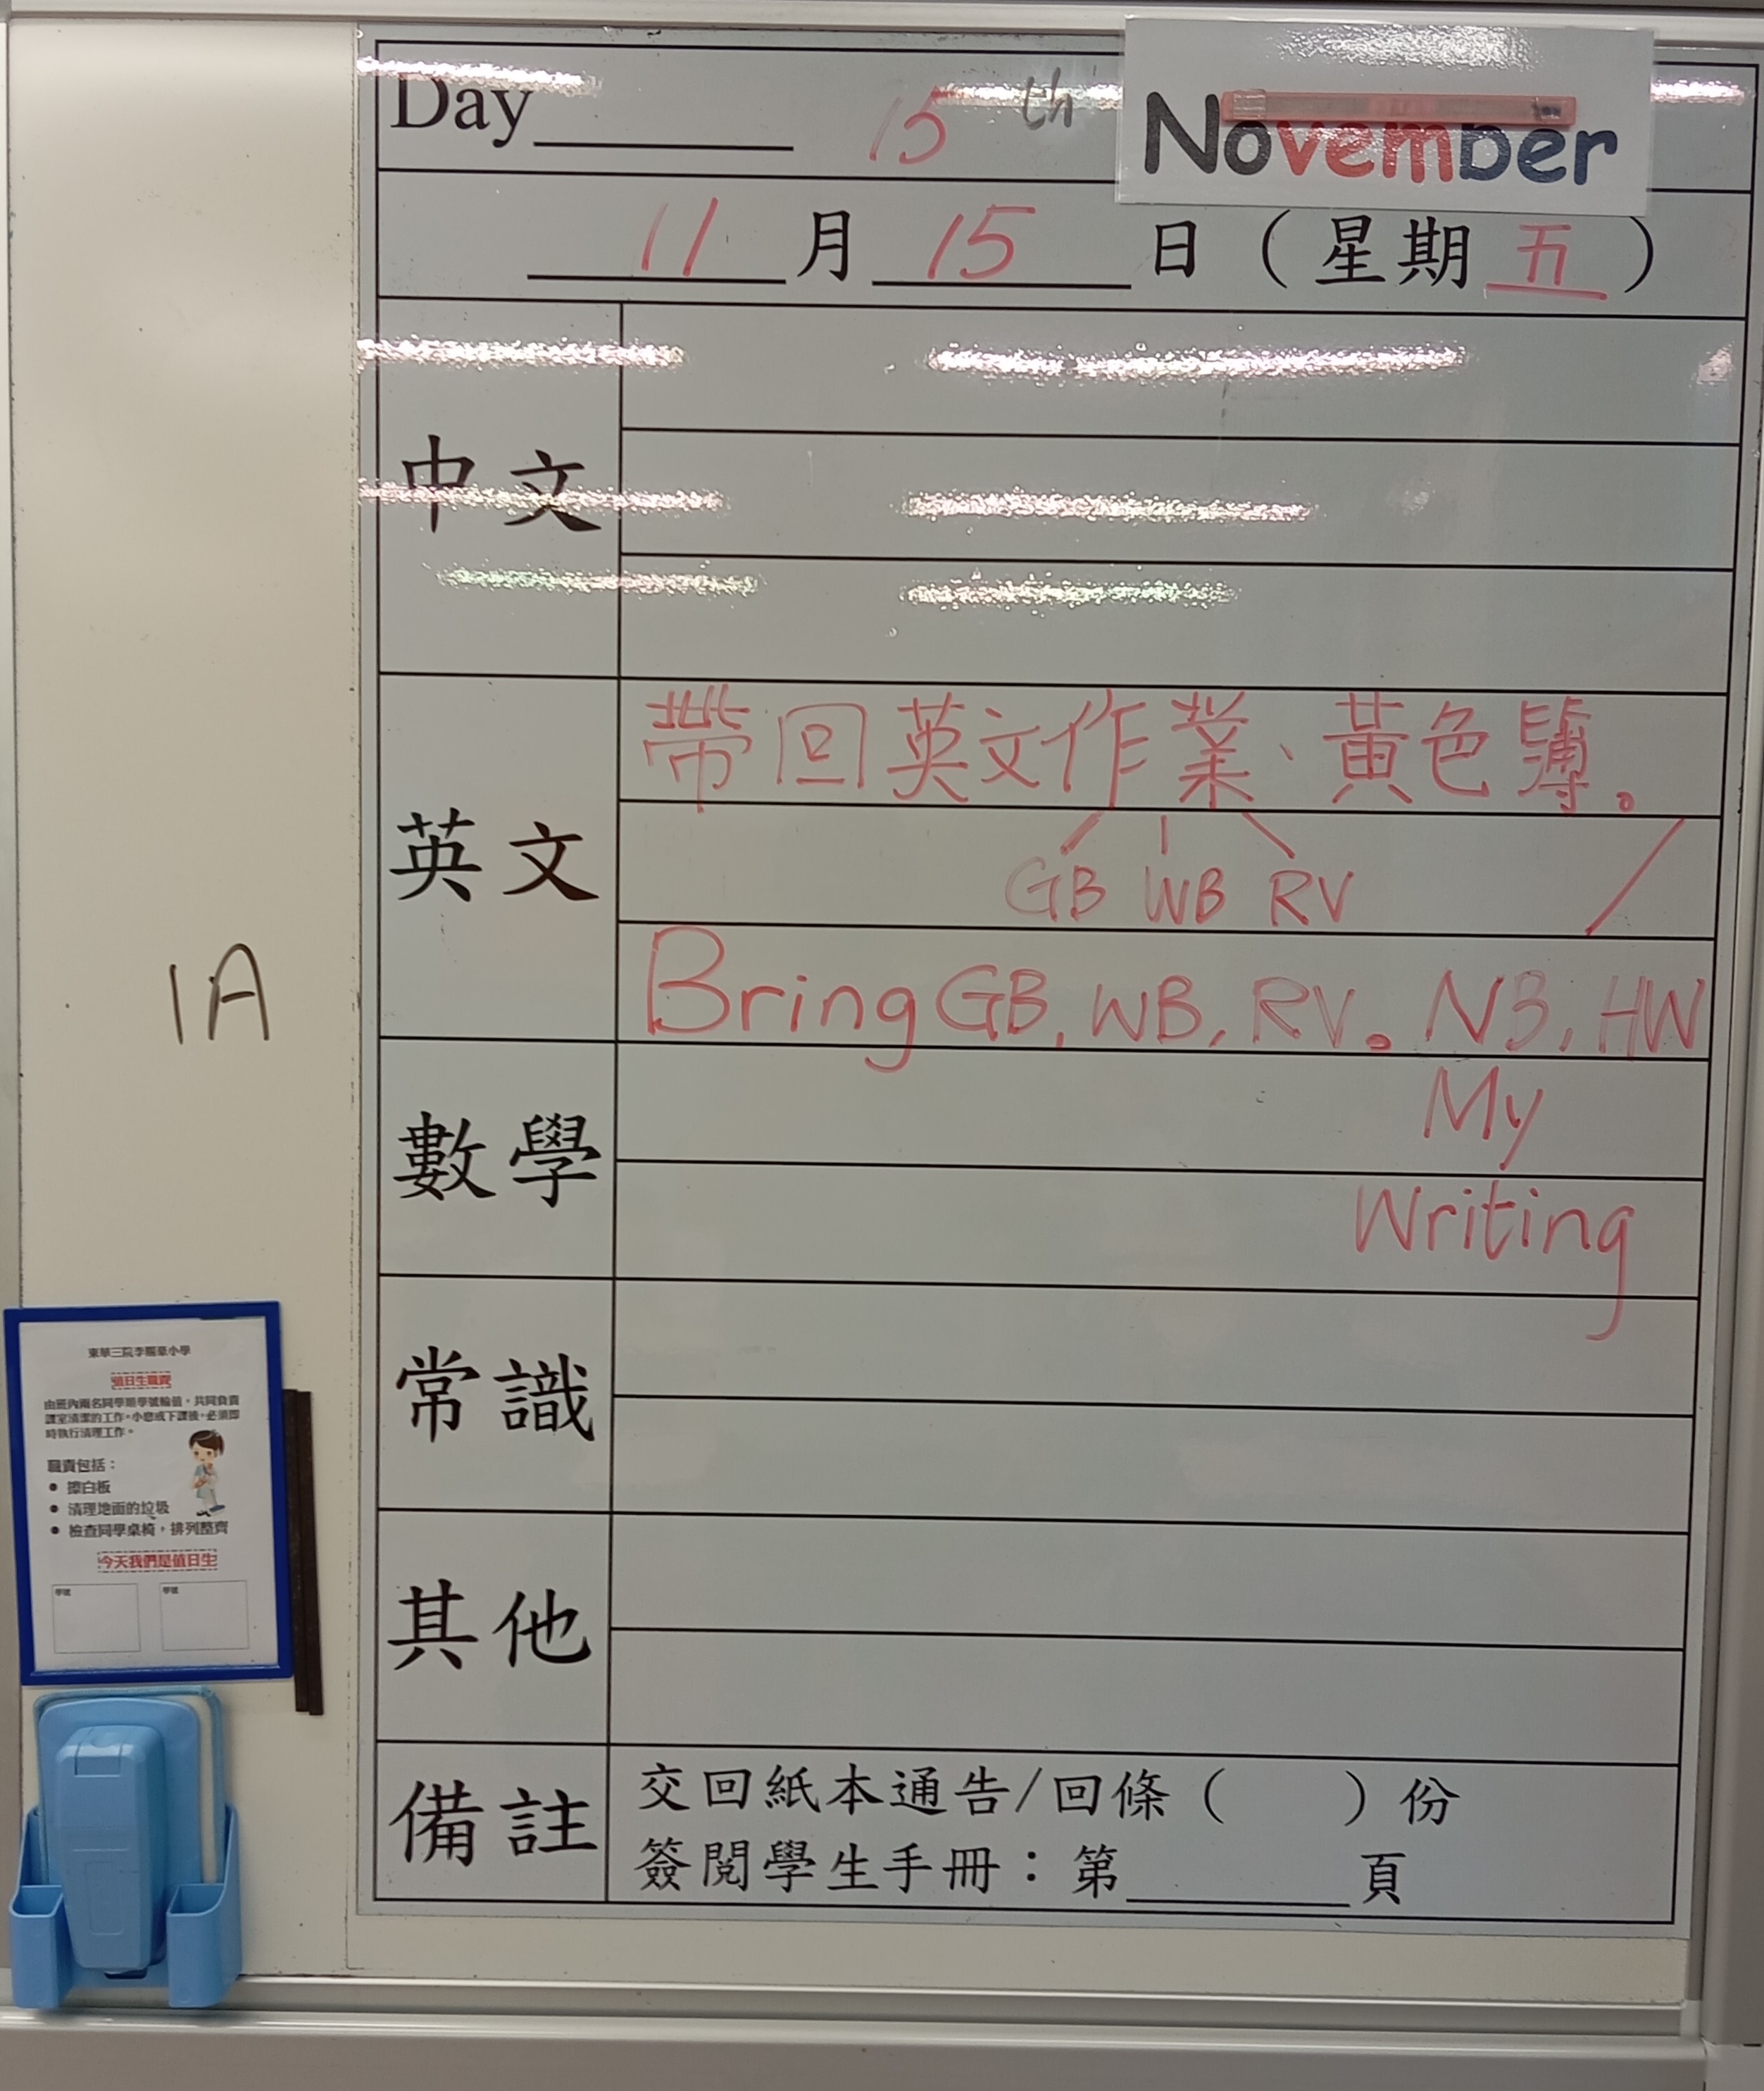 Day______ 15th November
11月15日（星期五）
中文
英文
帶回英文作業、黃色簿。
GB WB RV
Bring GB, WB, RV. NB, HW
My
Writing
數學
常識
其他
備註
交回紙本通告/回條（ ）份
簽閱學生手冊：第______頁
1A
值日生職責
由班內兩名同學順學號輪值，共同負責
課室清潔的工作。小息或下課後，必須即
時執行清理工作。
職責包括：
• 擦白板
• 清理地面的垃圾
• 檢查同學桌椅，排列整齊
今天我們是值日生
學號 學號